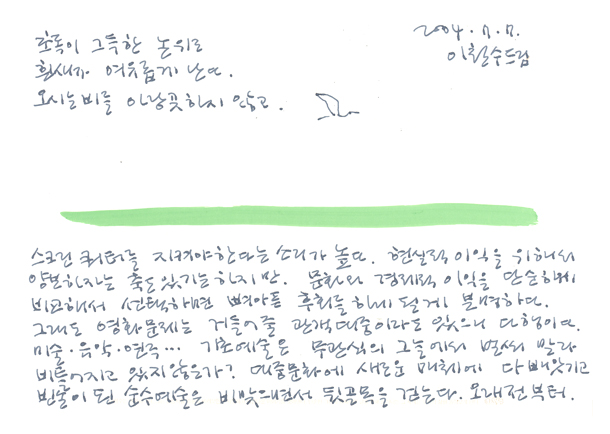 초록이 그득한 논위로
흰새가 여유롭게 난다.
오시는비를 아랑곳하지 않고.
2004. 7. 7.
이철수드림
스크린 쿼터를 지켜야한다는 소리가 높다. 현실적 이익을 위해서
양보하자는 축도 있기는하지만. 문화와 경제적 이익을 단순하게
비교해서 선택하면 뼈아픈 후회를 하게 될게 분명하다.
그래도 영화문제는 거들어줄 관객대중이라도 있으니 다행이다.
미술·음악·연극… 기초예술은 무관심의 그늘에서 벌써 말라
비틀어지고 있지않은가? 대중문화에 새로운 매체에 다 빼앗기고
빈손이 된 순수예술은 비맞으면서 뒷골목을 걷는다. 오래전부터.